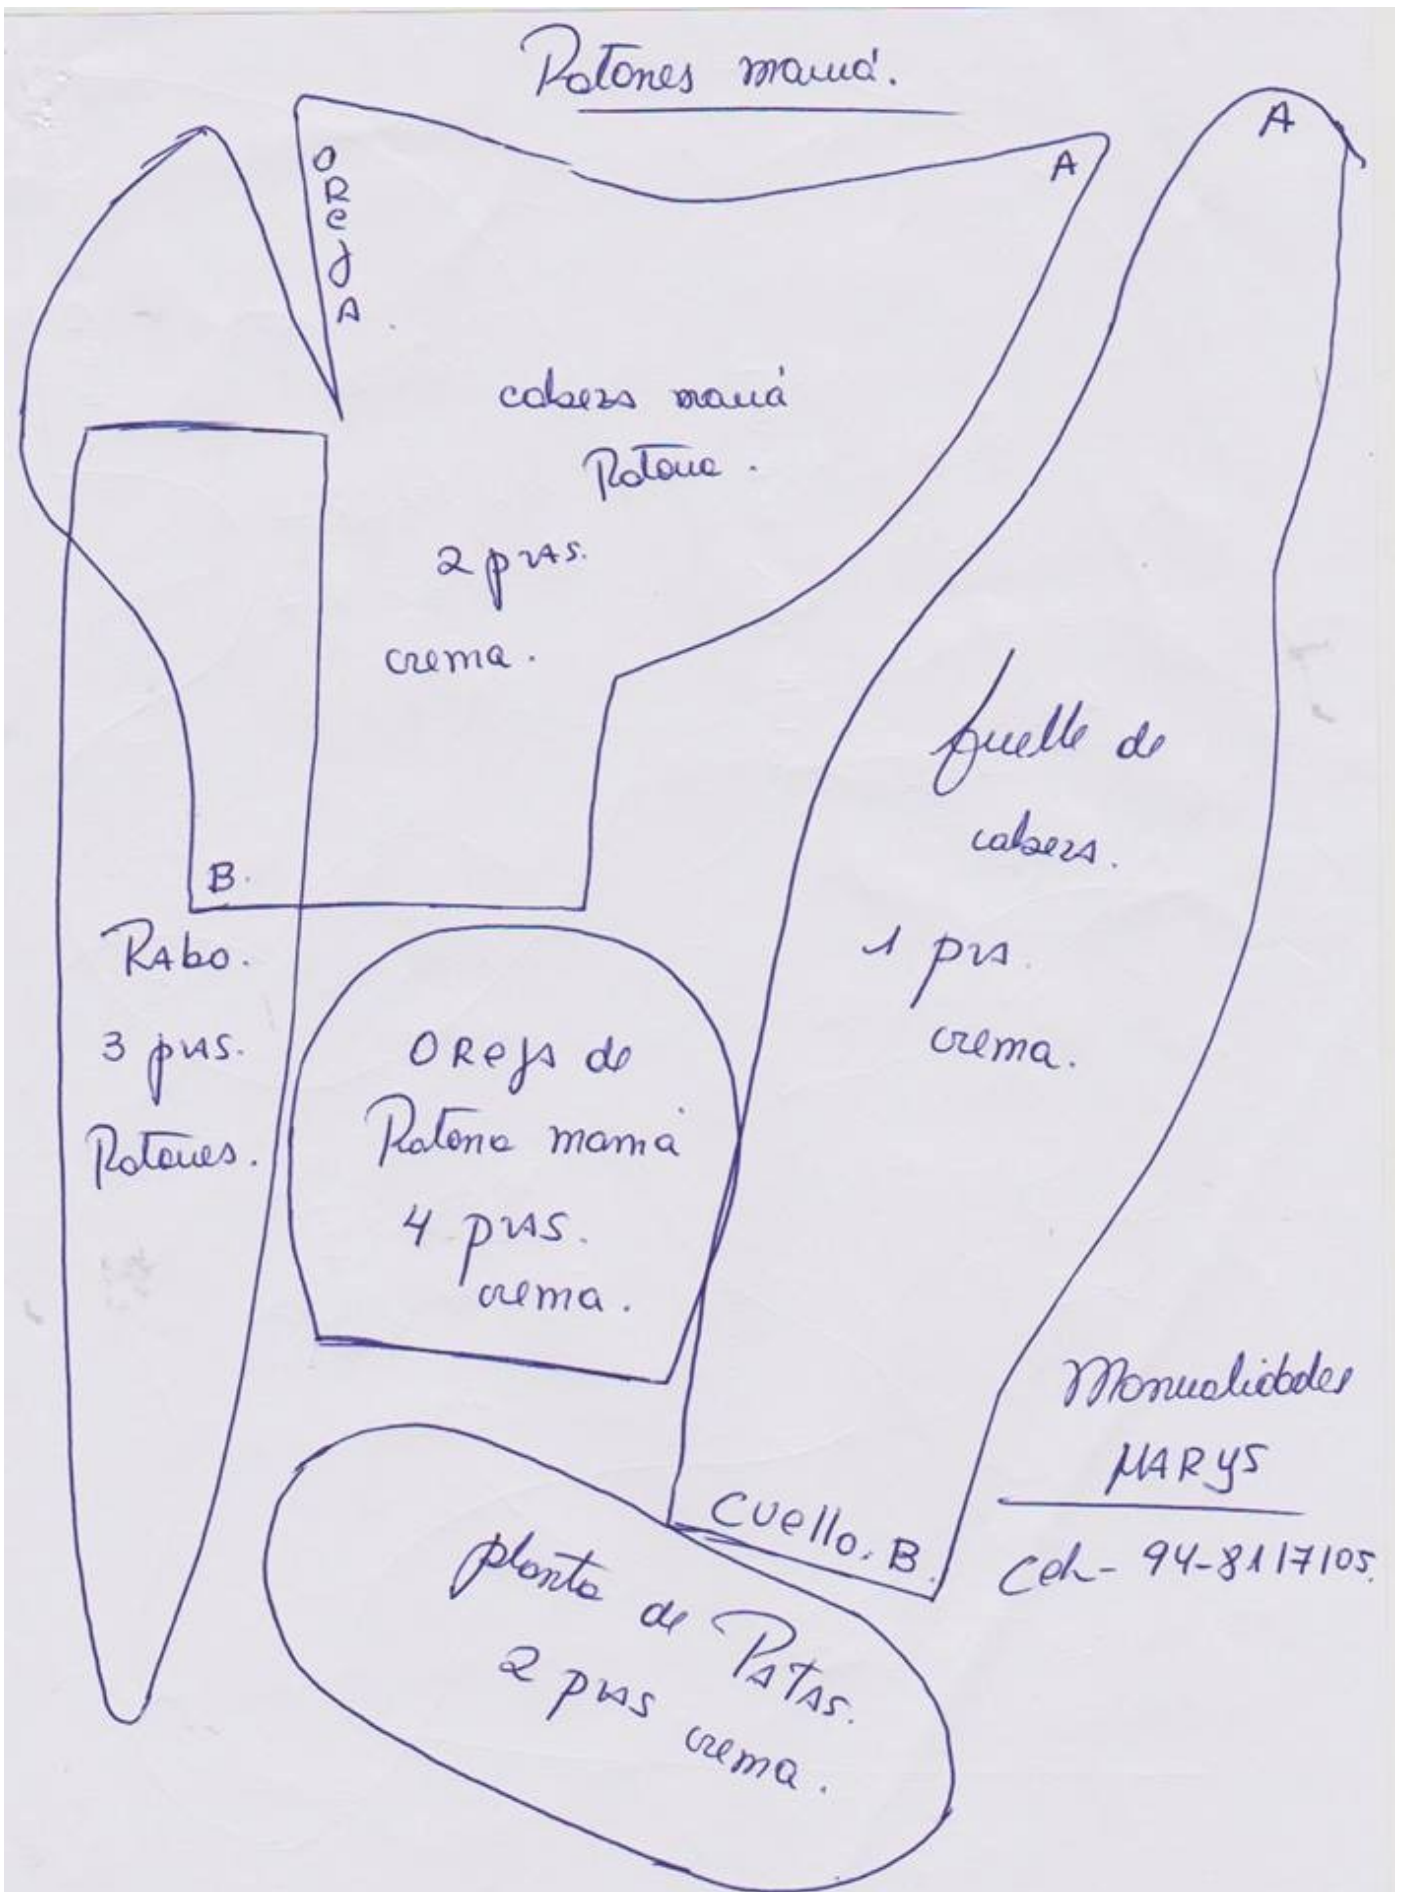 Ratones mamá.
A
A
OREJA
cabeza mamá
Ratona.
2 pzas.
crema.
fuelle de
cabeza.
1 pza.
crema.
B.
Rabo.
3 pzas.
Ratones.
OReja de
Ratona mamá
4 pzas.
crema.
Manualidades
MARYS
Cel- 94-8117105.
Cuello. B.
planta de PATAS.
2 pzas crema.